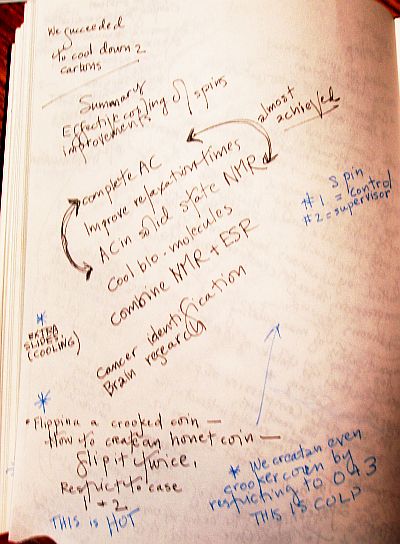 We succeeded
to cool down 2
carbons
Summary
Effective cooling of spins
improvements
almost
achieved
complete AC
Improve relaxation times
AC in solid state NMR
Cool bio-molecules
combine NMR + ESR
Cancer identification
Brain research
Spin
#1 = control
#2 = supervisor
* EXTRA
SLIDES
(COOLING)
*
• Flipping a crooked coin —
How to create an honet coin —
flip it twice,
Restrict to case
1 + 2
THIS IS HOT
* We creat an even
crooker coin by
restricting to 0 & 3
THIS IS COLD